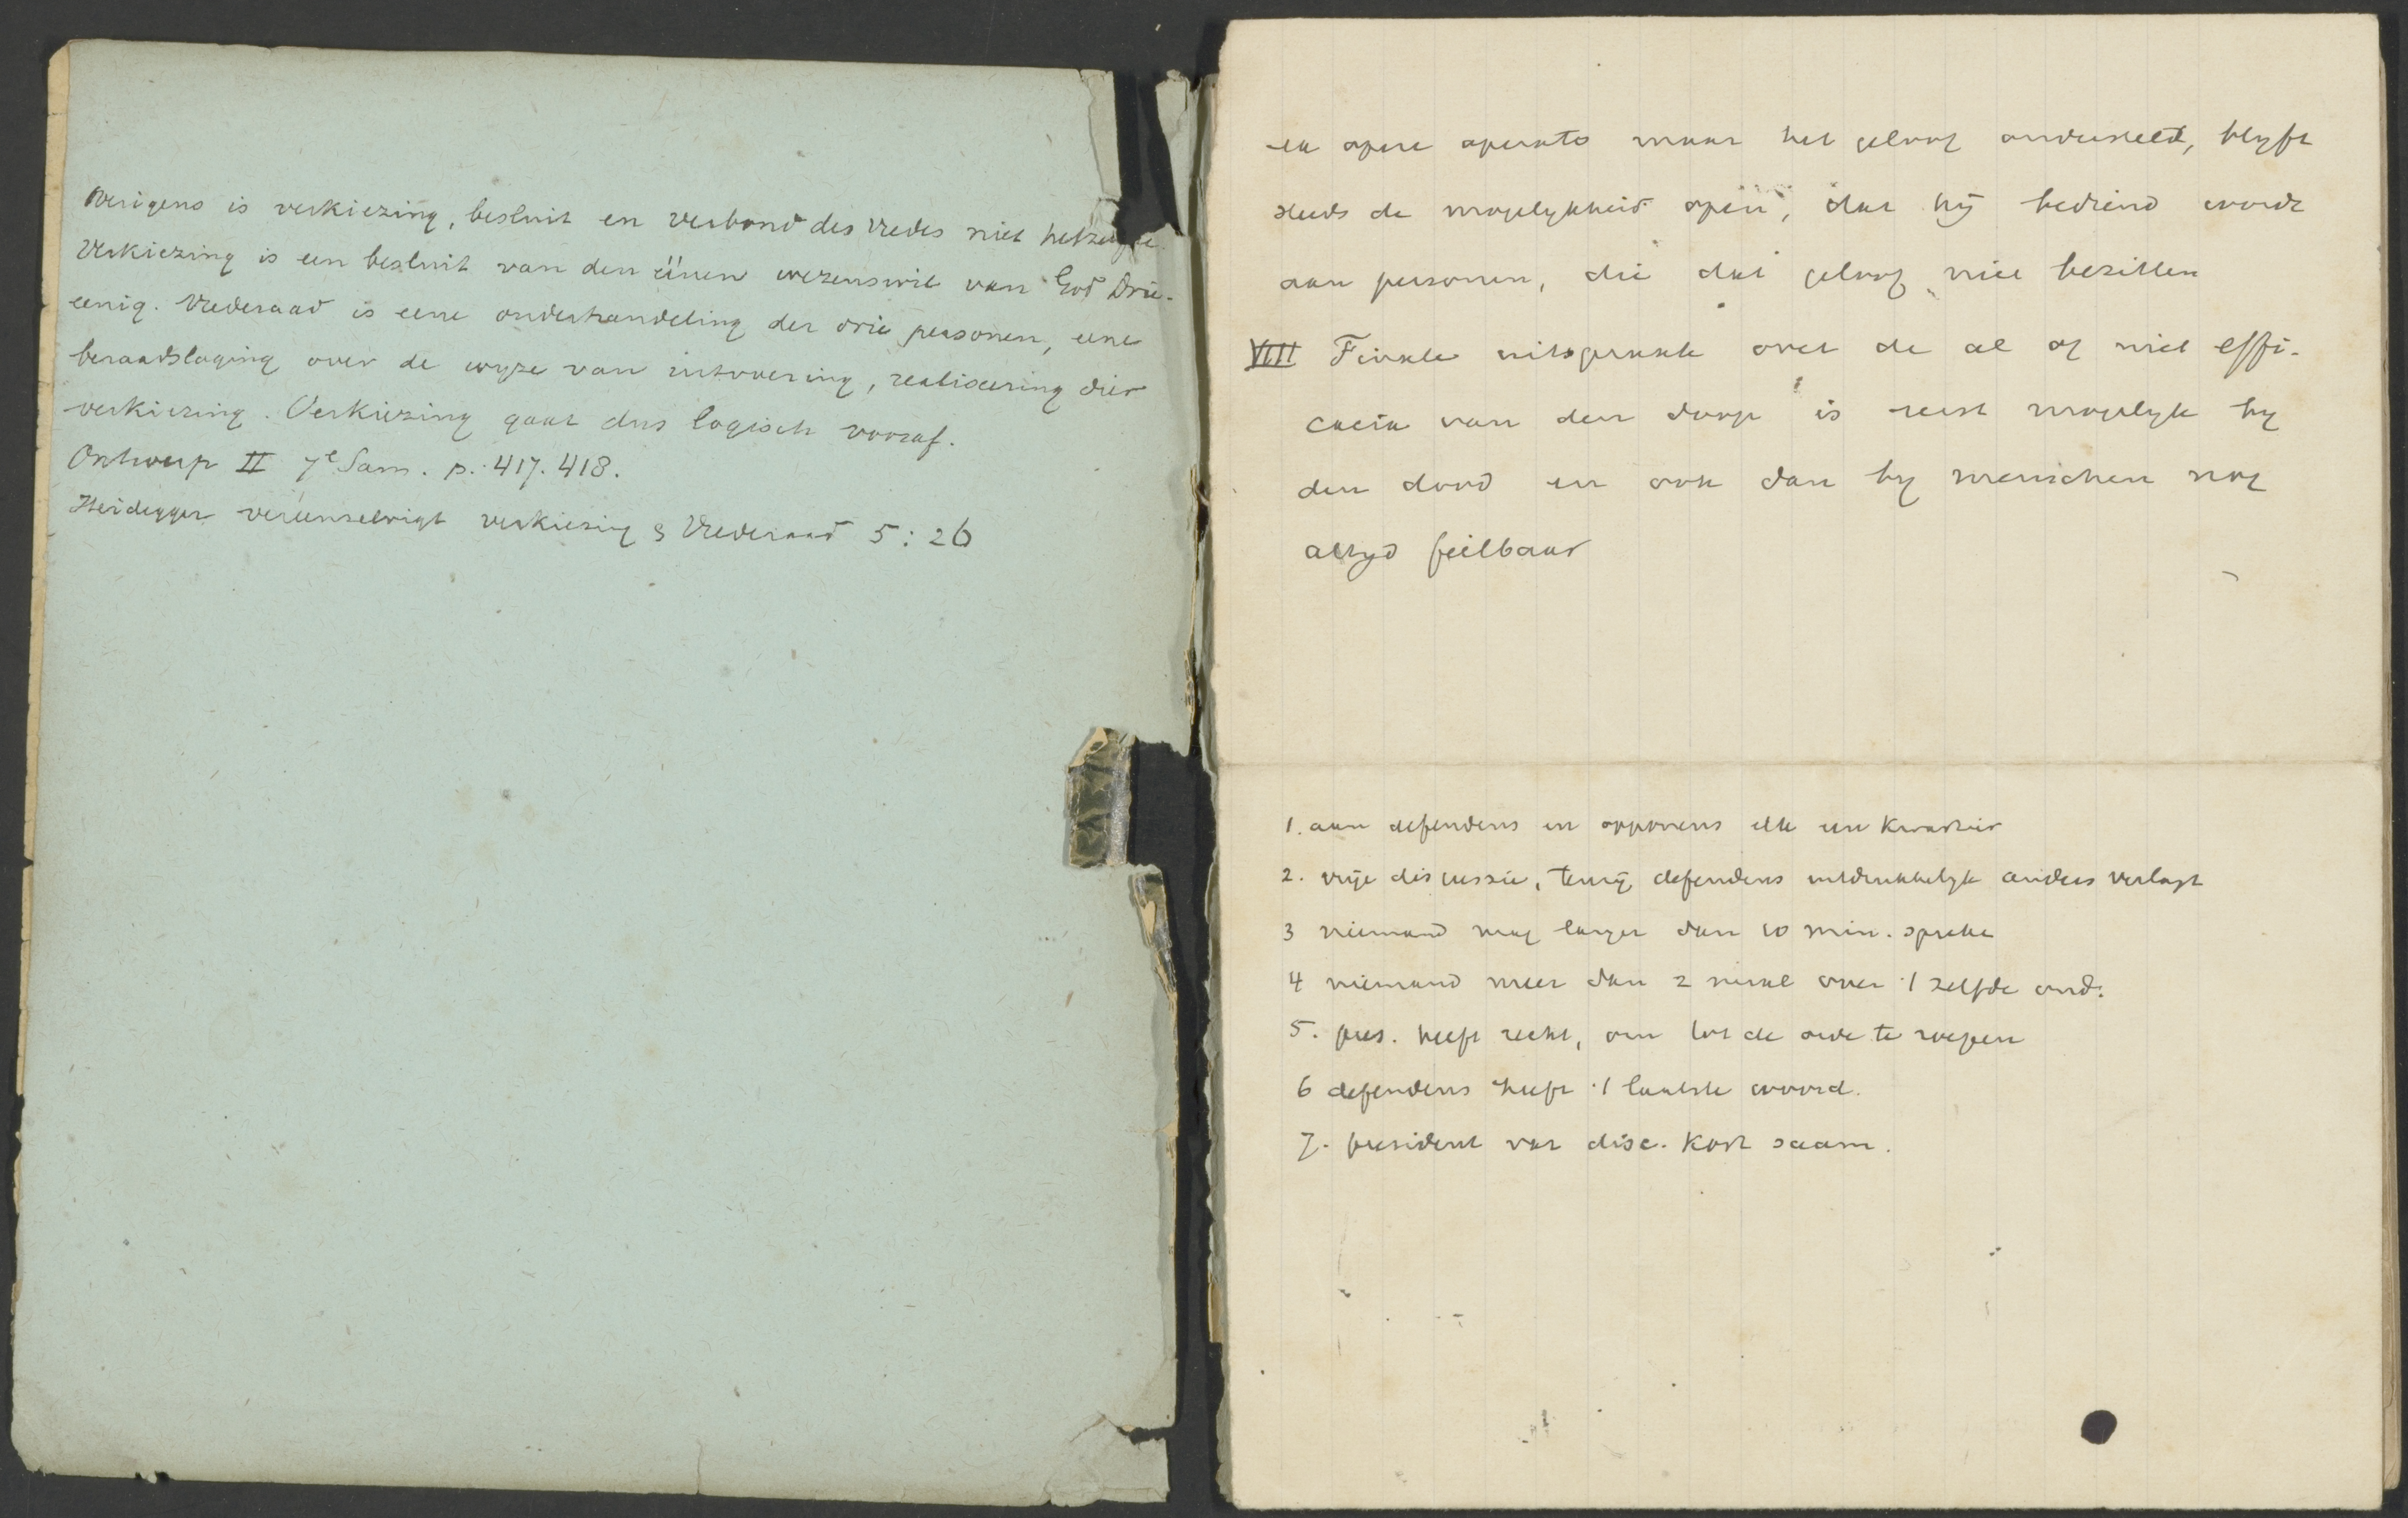 Overigens is verkiezing, besluit en verbond des vredes niet hetzelfde.
Verkiezing is een besluit van den éénen wezenswil van God Drie-
eenig. Vrederaad is eene onderhandeling der drie personen, eene
beraadslaging over de wyze van uitvoering, realiseering dier
verkiezing. Verkiezing gaat dus logisch vooraf.
Ontwerp II 7e Sam. p. 417. 418.
Heidegger vereenzelvigt verkiezing & Vrederaad 5:26
ex opere operato maar het geloof onderstelt, blyft
steeds de mogelykheid open, dat hij bediend wordt
aan personen, die dat geloof niet bezitten
VIII Finale uitspraak over de al of niet effi-
cacia van den doop is eerst mogelyk by
den dood en ook dan by menschen nog
altyd feilbaar
1. aan defendens en opponens elk een kwartier
2. vrije discussie, tenzij defendens uitdrukkelyk anders verlagt
3 niemand mag langer dan 10 min. spreke
4 niemand meer dan 2 maal over 't zelfde ond.
5. pres. heeft recht, om tot de orde te roepen
6 defendens heeft 't laatste woord.
7. president vat disc. kort saam.